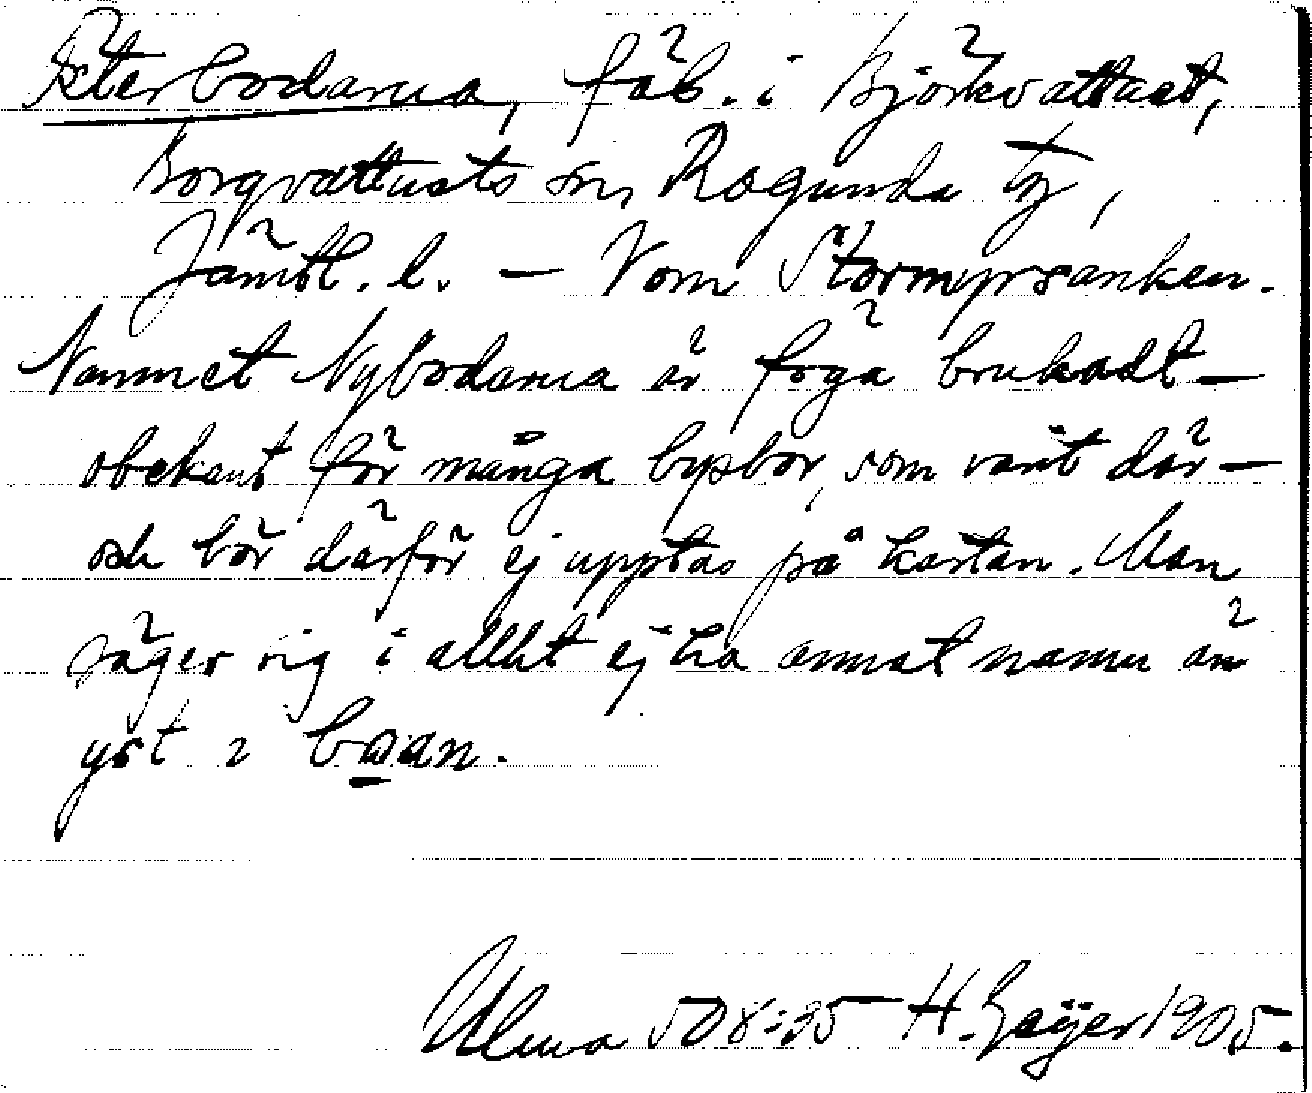 Peterbodarna, fäb. i Björkvattnet,
Borgvattnets sn, Ragunda tg,
Jämtl. l. — Vom Stormyrsanken.
Namnet Nybodarna är föga brukadt —
obekant för många bysbor, som varit där —
och bör därför ej upptas på kartan. Man
säger sig i alllt ej ha annat namn än
yst i boan.
Ulma 508:35 H. Geijer 1905.